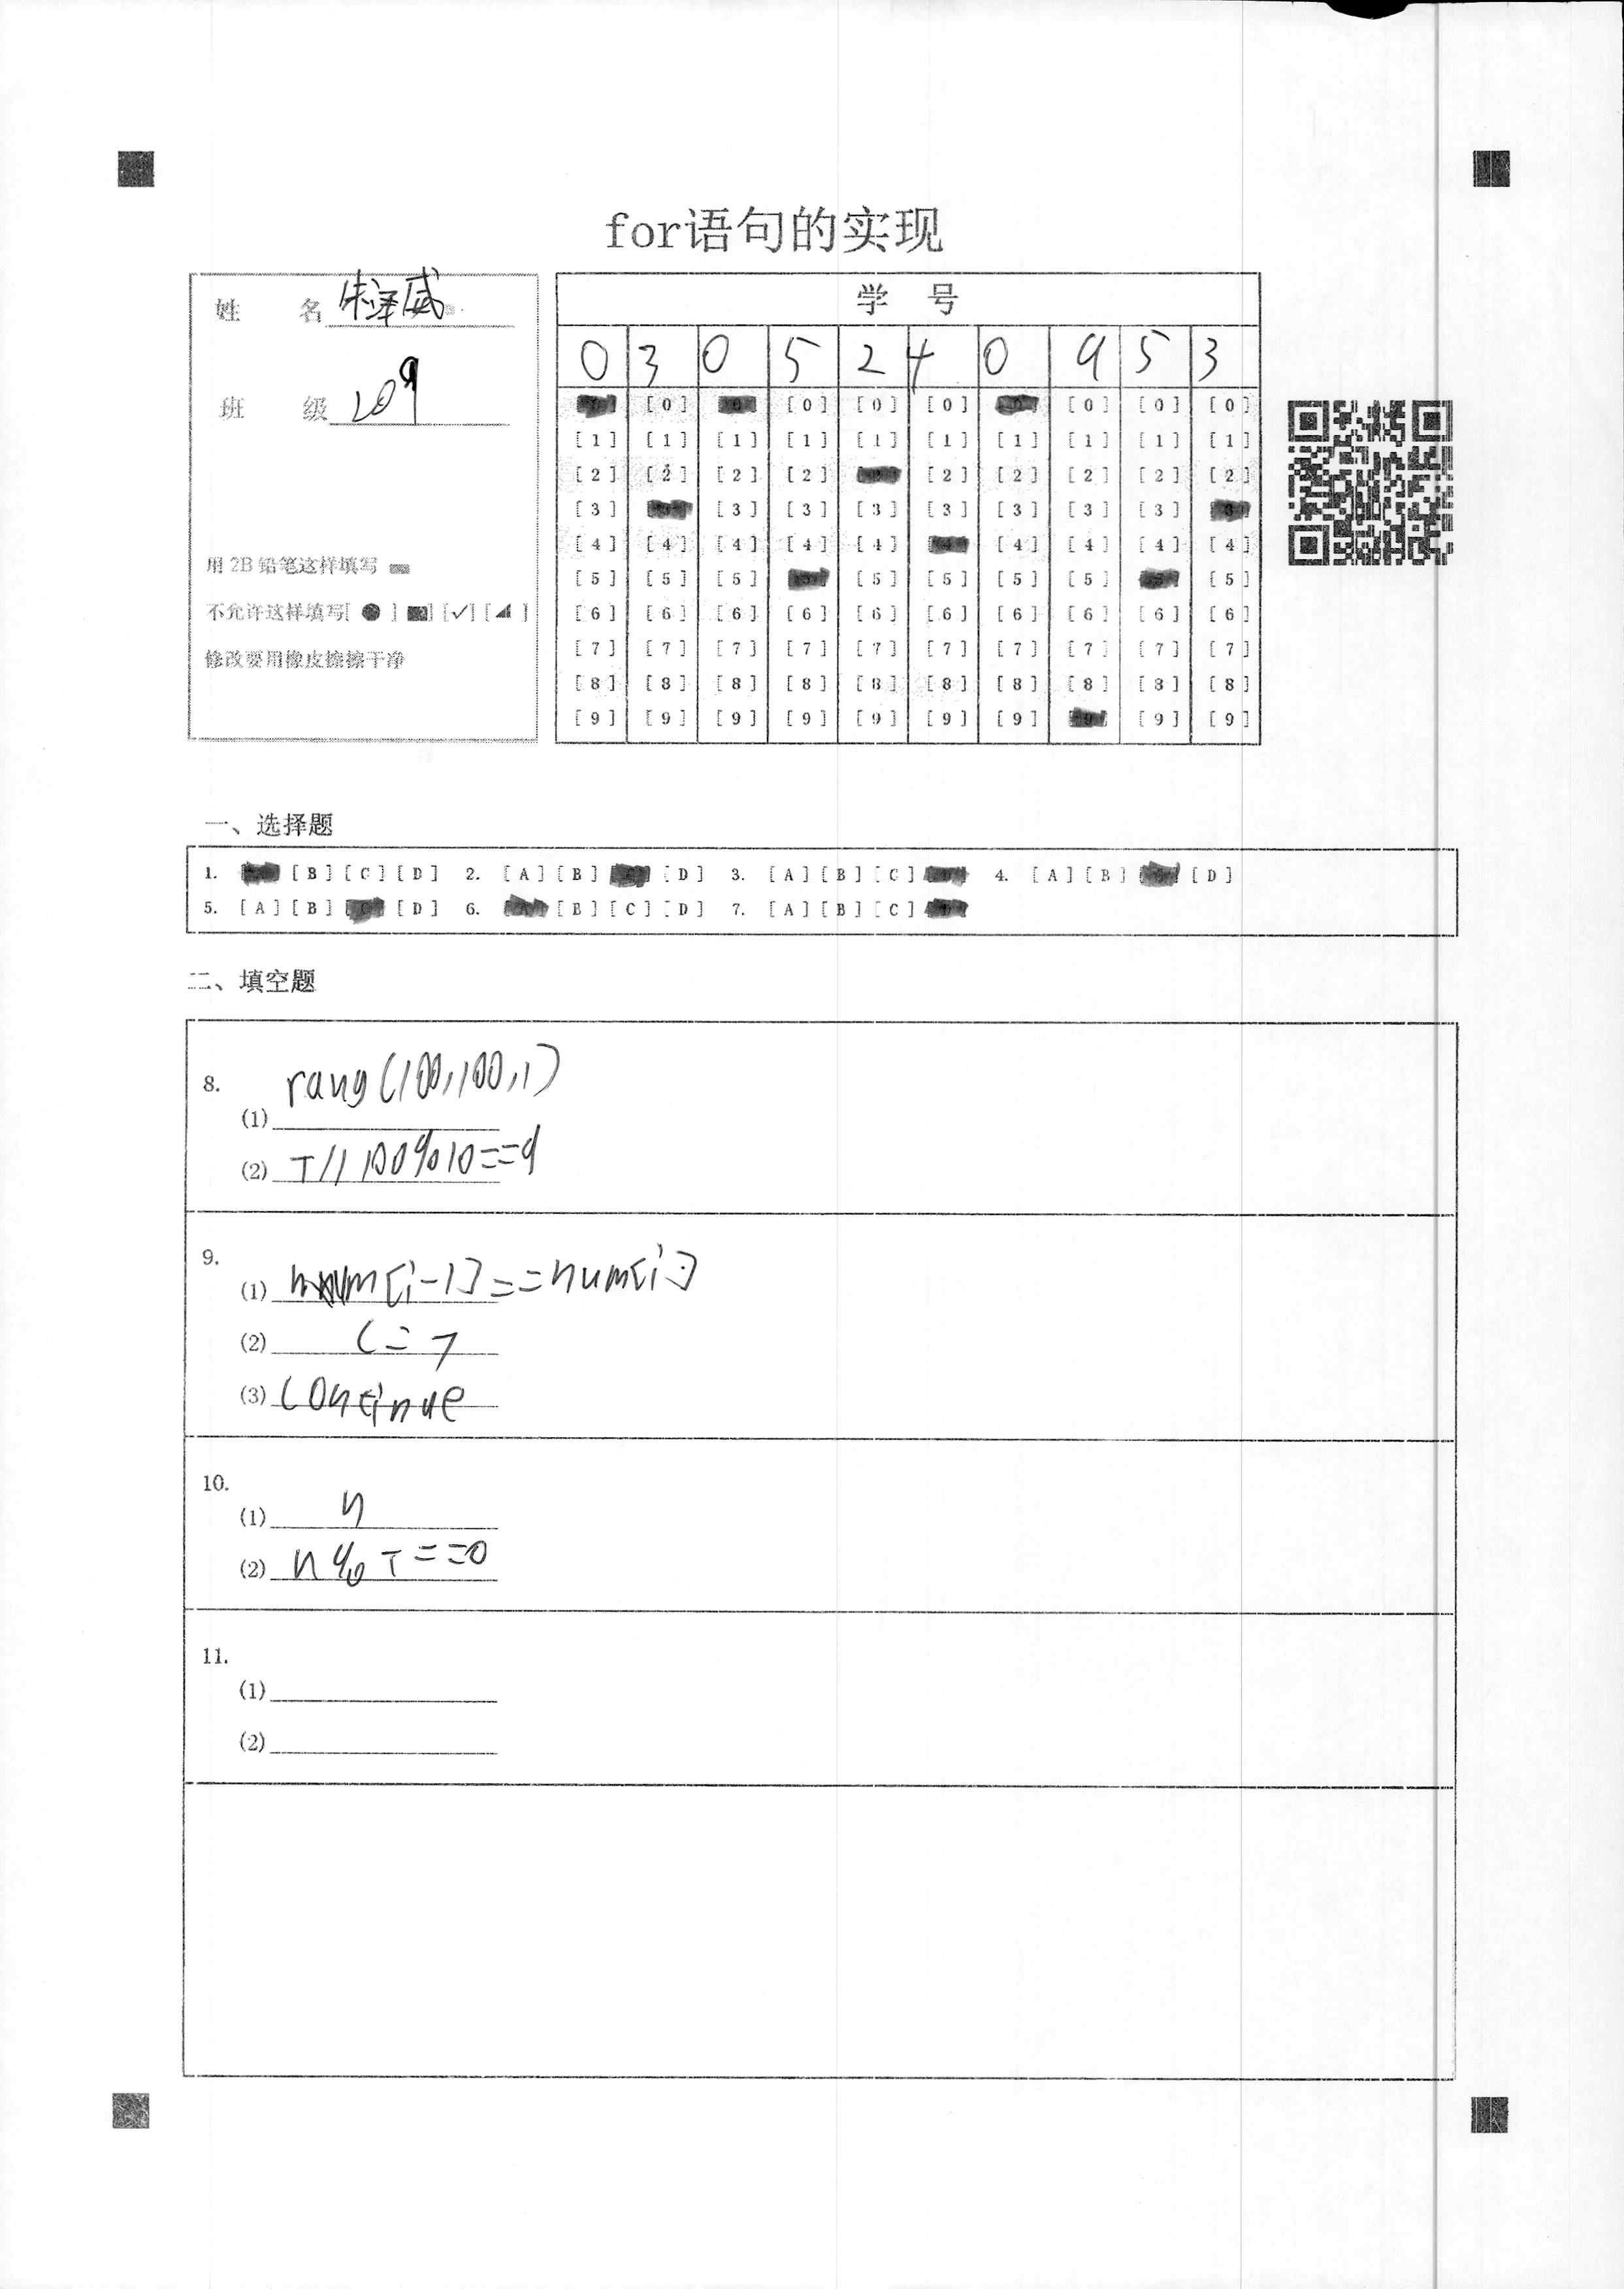 for语句的实现
姓 名 朱泽威
班 级 209
用 2B 铅笔这样填写
不允许这样填写[ ● ] [■] [✓] [◢ ]
修改要用橡皮擦擦干净
学 号
0 3 0 5 2 4 0 9 5 3
[0] [0] [0] [0] [0] [0] [0] [0] [0] [0]
[1] [1] [1] [1] [1] [1] [1] [1] [1] [1]
[2] [2] [2] [2] [2] [2] [2] [2] [2] [2]
[3] [3] [3] [3] [3] [3] [3] [3] [3] [3]
[4] [4] [4] [4] [4] [4] [4] [4] [4] [4]
[5] [5] [5] [5] [5] [5] [5] [5] [5] [5]
[6] [6] [6] [6] [6] [6] [6] [6] [6] [6]
[7] [7] [7] [7] [7] [7] [7] [7] [7] [7]
[8] [8] [8] [8] [8] [8] [8] [8] [8] [8]
[9] [9] [9] [9] [9] [9] [9] [9] [9] [9]
一、选择题
1. [A] [B] [C] [D] 2. [A] [B] [C] [D] 3. [A] [B] [C] [D] 4. [A] [B] [C] [D]
5. [A] [B] [C] [D] 6. [A] [B] [C] [D] 7. [A] [B] [C] [D]
二、填空题
8.
(1) rang(100,100,1)
(2) T//100%10==9
9.
(1) num[i-1]==num[i]
(2) C=7
(3) continue
10.
(1) n
(2) n%T==0
11.
(1)
(2)